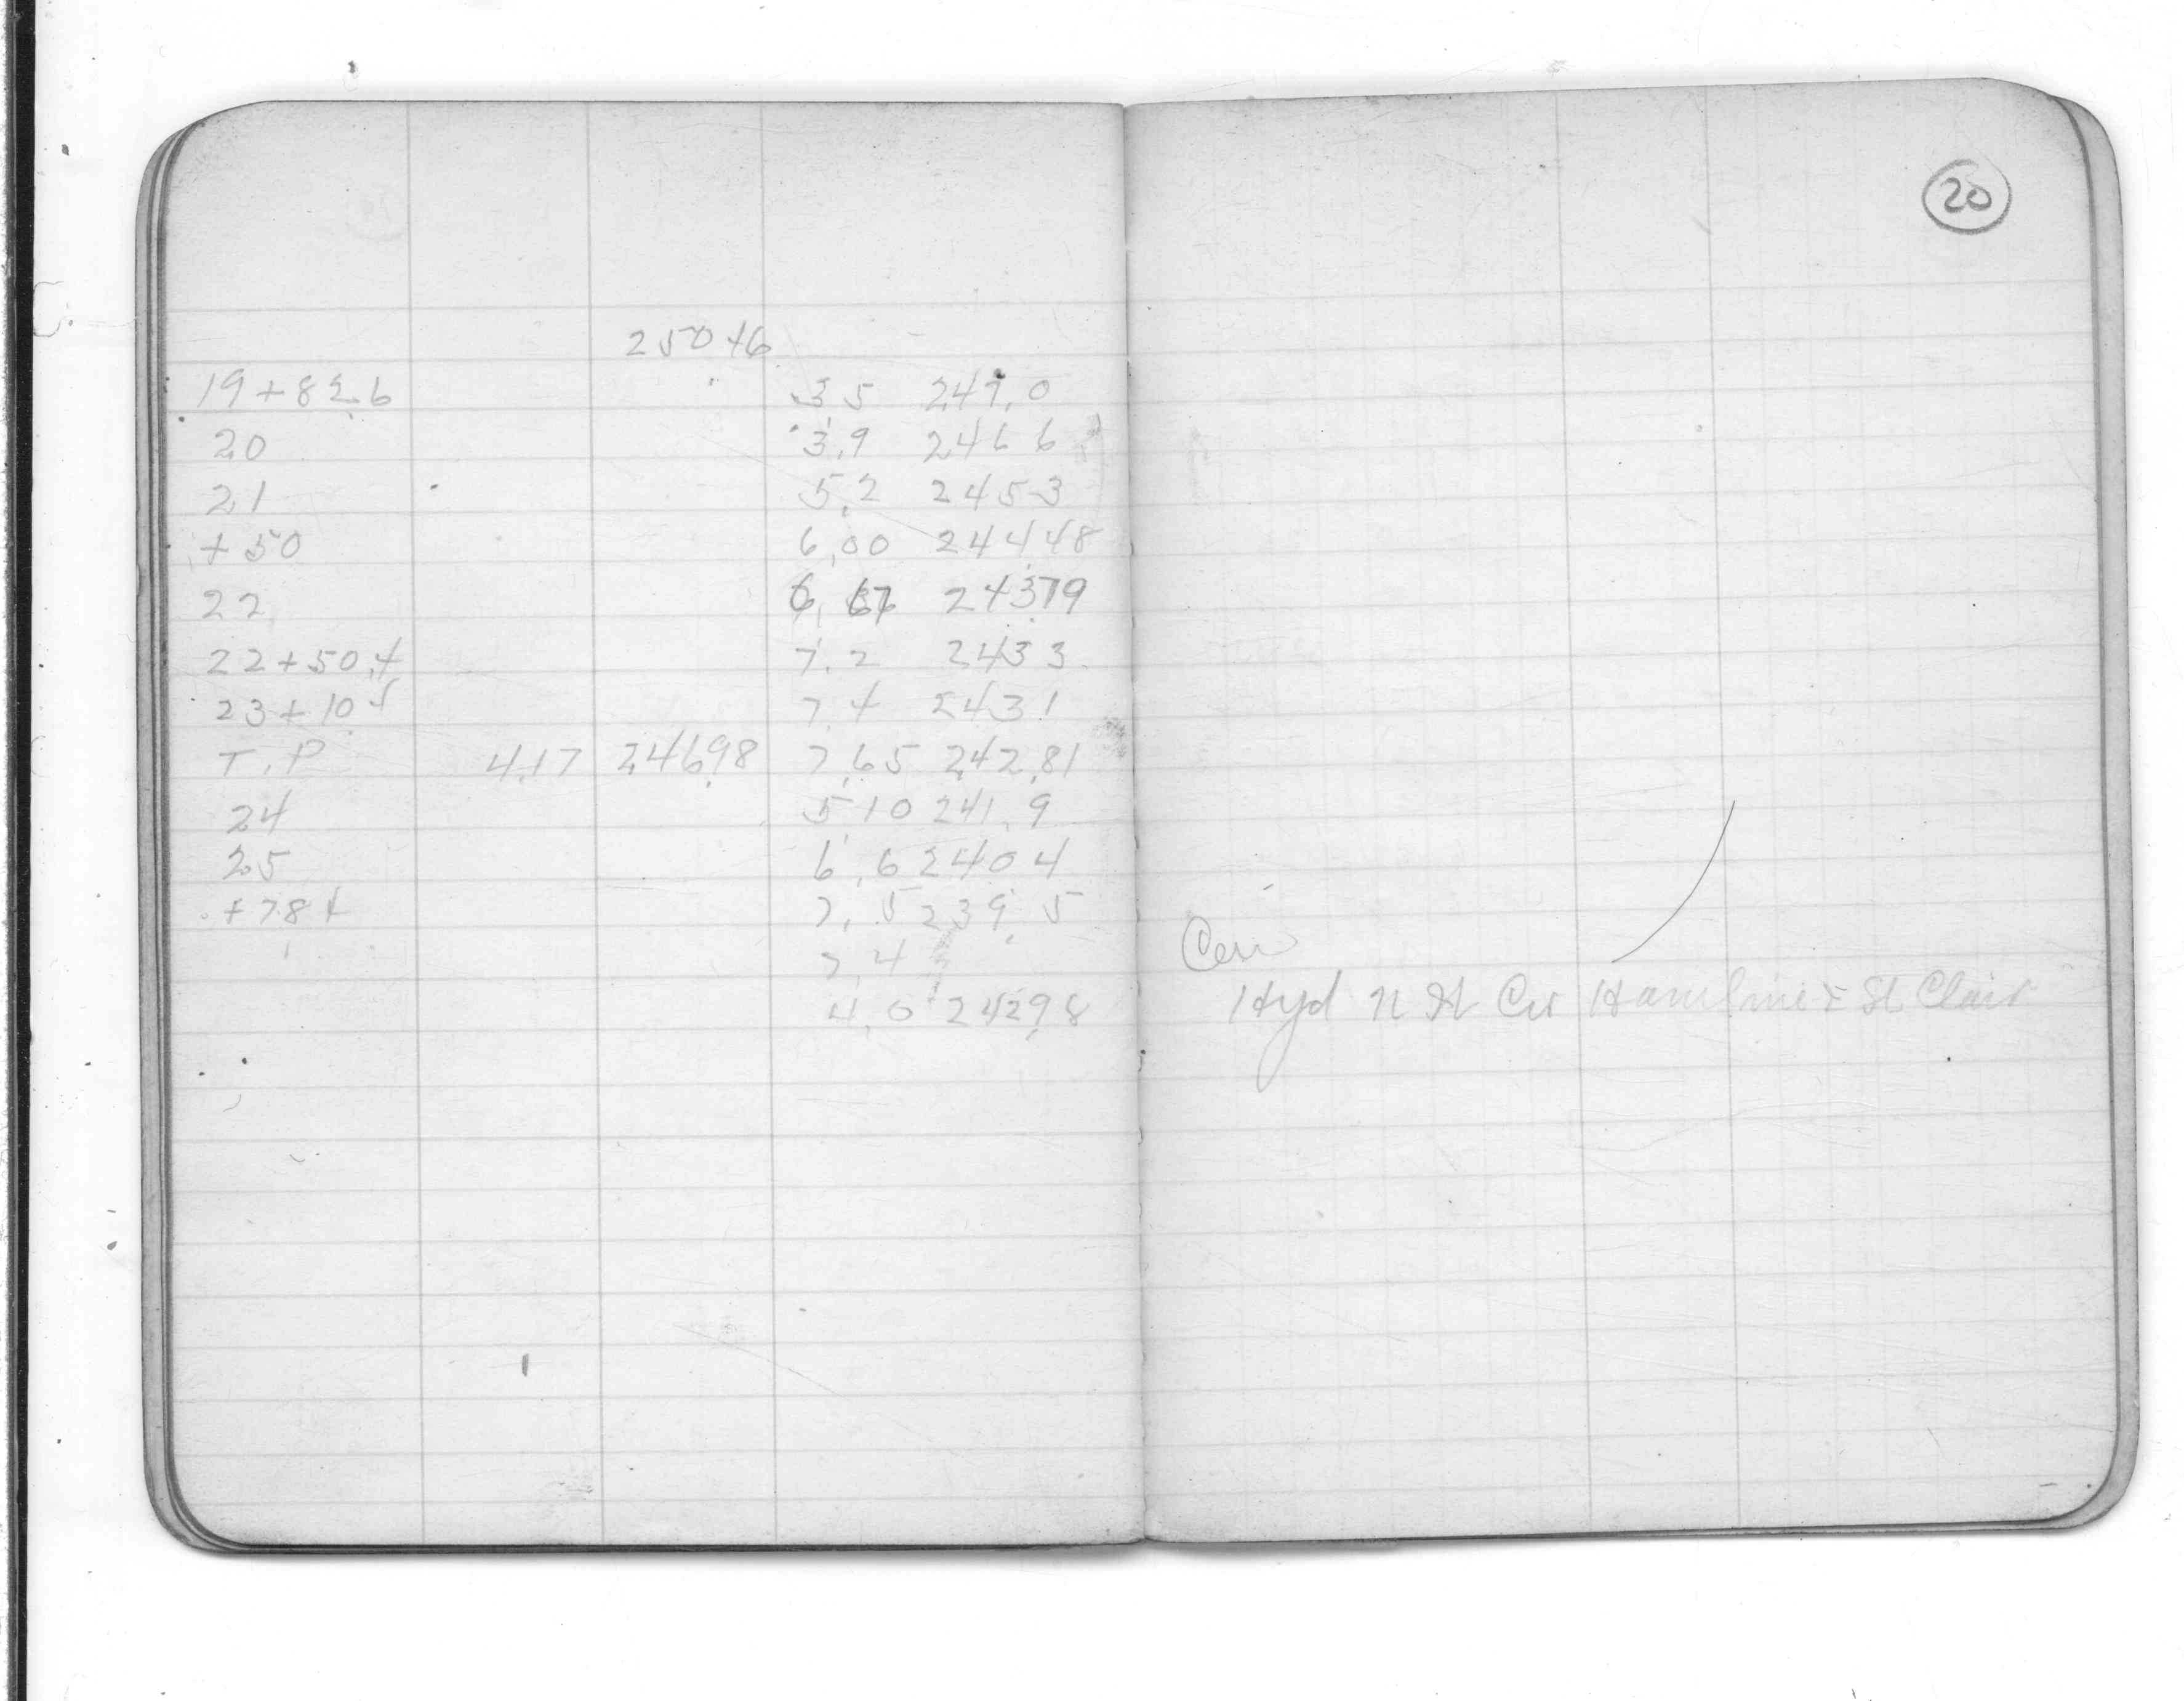 20
250 46
19+82.6 3.5 247.0
20 3.9 246 6
21 5.2 245 3
+50 6.00 244.48
22 6.67 243.79
22+50.4 7.2 243 3
23+10.5 7.4 243.1
T.P 4.17 246.98 7.65 242.81
24 5.10 241.9
25 6.6 240 4
+78.4 7.5 239.5
7.4
4.0 242.98
Cen
Hyd N W Cor Hamline & St Clair